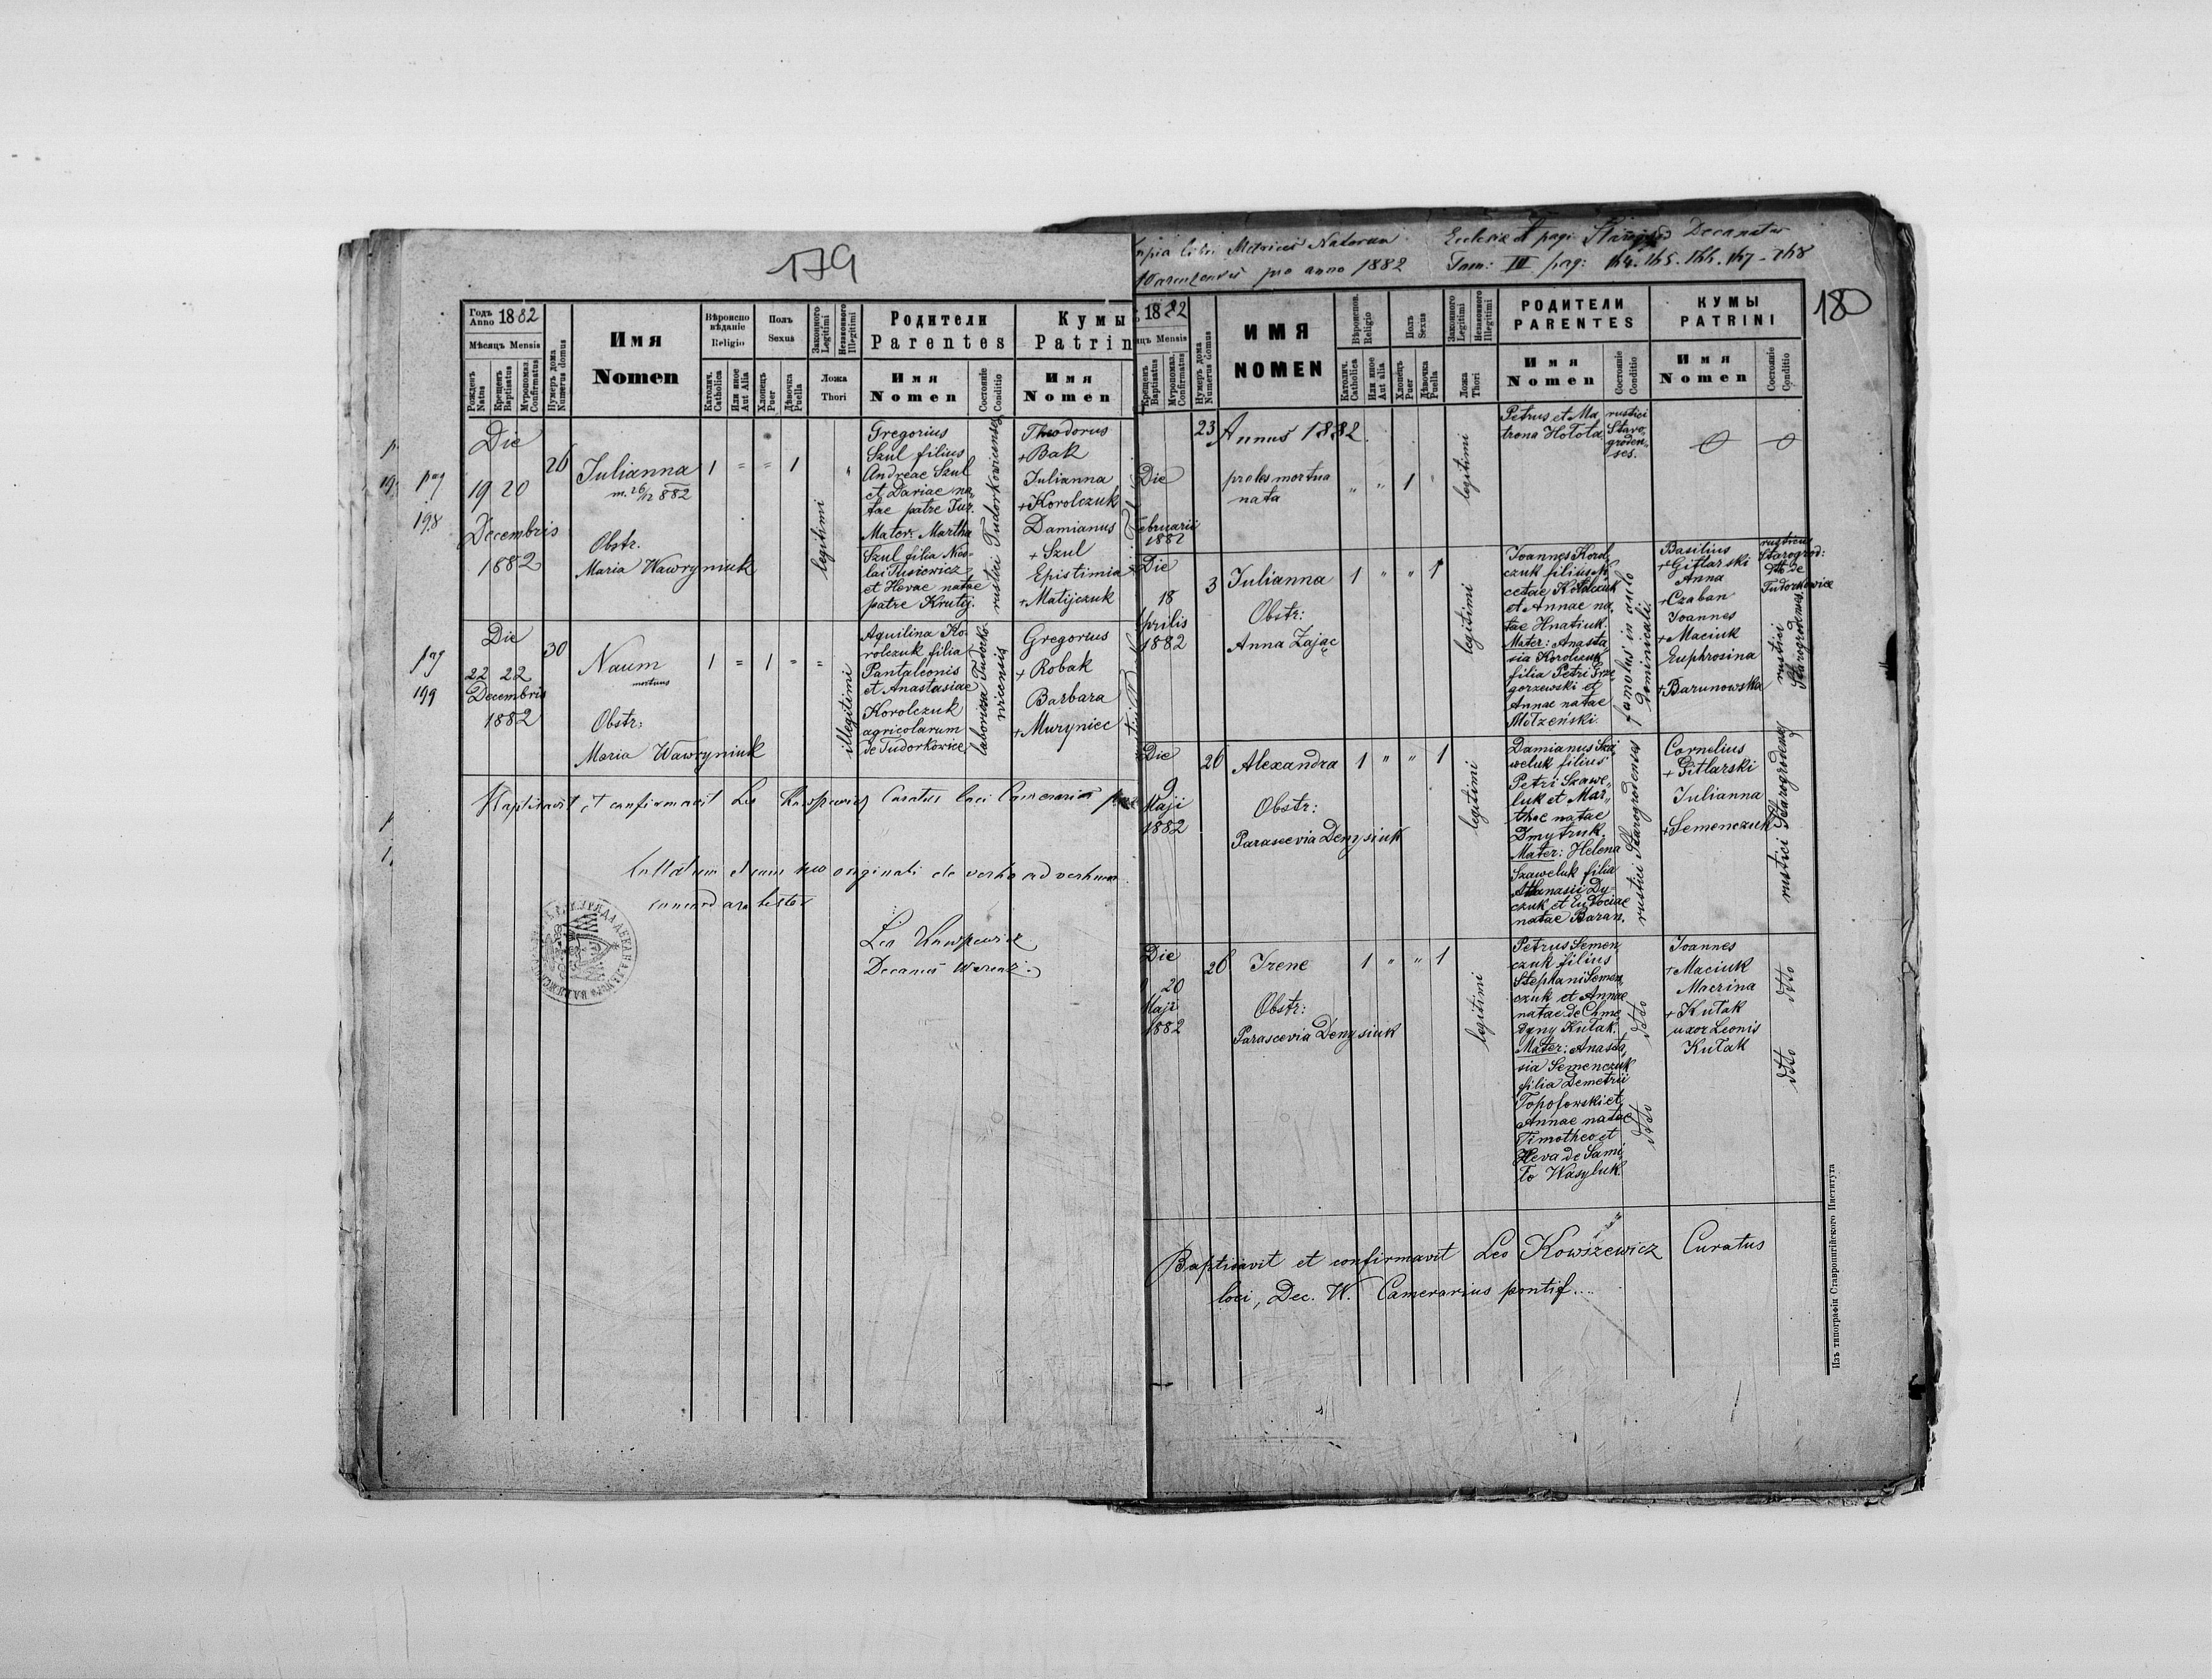 179
Годъ Anno 1882
Мѣсяцъ Mensis
Рожденъ Natus
Крещенъ Baptisatus
Мѵропомаз. Confirmatus
Нумеръ дома Numerus domus
Имя
Nomen
Вѣроиспо вѣданіе
Religio
Католич. Catholica
Или иное Aut Alia
Полъ
Sexus
Хлопецъ Puer
Дѣвочка Puella
Законного Legitimi
Незаконного Illegitimi
Ложа
Thori
Родители
Parentes
Имя
Nomen
Состояніе Conditio
Кумы
Patrin
Имя
Nomen
pag
198
Die
19 20
Decembris
1882
26
Julianna
m. 26/12 882
Obstr.
Maria Wawryniuk
1 " " 1
legitimi
Gregorius
Szul filius
Andreae Szul
et Dariae na-
tae patre Jur.
Mater: Martha
Szul filia Nico-
lai
et Hevae natae
patre Krutij.
rustici Tudorkowicenses
Theodorus
+ Bak
Julianna
+ Korolczuk
Damianus
+ Szul
Epistimia
+ Matijczuk
pag
199
Die
22 22
Decembris
1882
30
Naum
mortuus
Obstr:
Maria Wawryniuk
1 " 1 " "
illegitimi
Aquilina Ko-
rolczuk filia
Pantaleonis
et Anastasiae
Korolczuk
agricolarum
de Tudorkowice
laboriosa Tudorko-
wicensis
Gregorius
+ Robak
Barbara
+ Muryniec
Baptisavit et confirmavit Leo Curatus loci Camerarius
Collatum et cum suo originali de verbo ad verbum
concordare testor
Leo
Decanus
180
opia libri Metrices Natorum Ecclesiae pagi Starogrod Decanatus
Warenzensis pro anno 1882 Tom: III pag: 164. 165. 166. 167. 168
1882
яцъ Mensis
Крещенъ Baptisatus
Мѵропомаз. Confirmatus
Нумеръ дома Numerus domus
ИМЯ
NOMEN
Вѣроиспов. Religio
Католич. Catholica
Или иное Aut alia
Полъ Sexus
Хлопецъ Puer
Дѣвочка Puella
Законного Legitimi
Незаконного Illegitimi
Ложа Thori
РОДИТЕЛИ
PARENTES
Имя
Nomen
Состояніе Conditio
КУМЫ
PATRINI
Имя
Nomen
Состояніе Conditio
23
Annus 1882
Die
Februarii
1882
proles mortua
nata
" " 1 "
legitimi
Petrus et Ma-
trona Hołota
rustici
Staro-
groden-
ses.
Die
18
Aprilis
1882
3
Julianna
Obstr:
Anna Zając
1 " " 1
legitimi
Joannes Korol
czuk filius Ni
cetae Korolczuk
et Annae na-
tae Hnatiuk.
Mater: Anasta
sia Korolczuk
filia Petri Grze
gorzewski et
Annae natae
famulus in aulo
dominicali.
Basilius
+ Gitlarski
Anna
+ Czaban
Joannes
+ Maciuk
Euphrosina
+ Barunowska
rusticus
Starogrod:
tto de
Tudorkowice
rustici
Starogrodenses.
Die
9
Maji
1882
26
Alexandra
Obstr:
Parascevia Denysiuk
1 " " 1
legitimi
Damianus Sza
weluk filius
Petri Szawe-
luk et Mar-
thae natae
Dmytruk.
Mater: Helena
Szaweluk filia
Athanasii Dy-
czuk et Eudociae
natae Baran.
rustici Starogrodenses
Cornelius
+ Gitlarski
Julianna
+ Semenczuk
rustici Starogrodenses
Die
20
Maji
1882
26
Irene
Obstr:
Parascevia Denysiuk
1 " " 1
legitimi
Petrus Semen
czuk filius
Stephani Semen
czuk et Annae
natae de Chme
Kułak.
Mater: Anasta
sia Semenczuk
filia Demetrii
Topołowski et
Annae natae
Timotheo et
Heva de Sami
ło Wasyluk
ddto
ddto
Joannes
+ Maciuk
Macrina
+ Kułak
uxor Leonis
Kułak
ddto
ddto
Baptisavit et confirmavit Leo Kowszewicz Curatus
loci, Dec. W. Camerarius pontif...
Изъ типографіи Ставропигійского Института